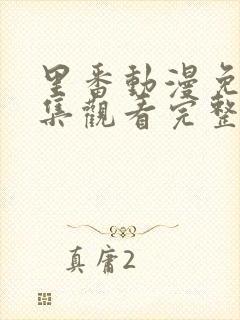 里番動漫免
集觀看完整
真庸2